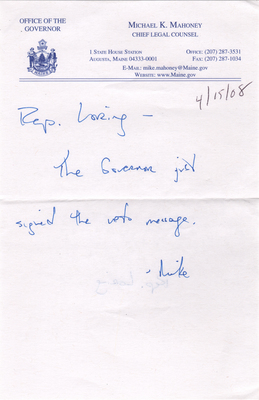 OFFICE OF THE
GOVERNOR
MICHAEL K. MAHONEY
CHIEF LEGAL COUNSEL
1 STATE HOUSE STATION
AUGUSTA, MAINE 04333-0001
OFFICE: (207) 287-3531
FAX: (207) 287-1034
E-MAIL: mike.mahoney@Maine.gov
WEBSITE: www.Maine.gov
4/15/08
Rep. Loring –
The Governor just
signed the veto message.
- Mike